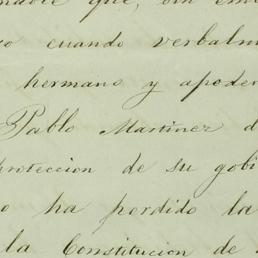 que, sin em
o cuando verbalm
hermano y apoder
Pablo Martinez d
proteccion de su gobi
o ha perdido la
la Constitucion de